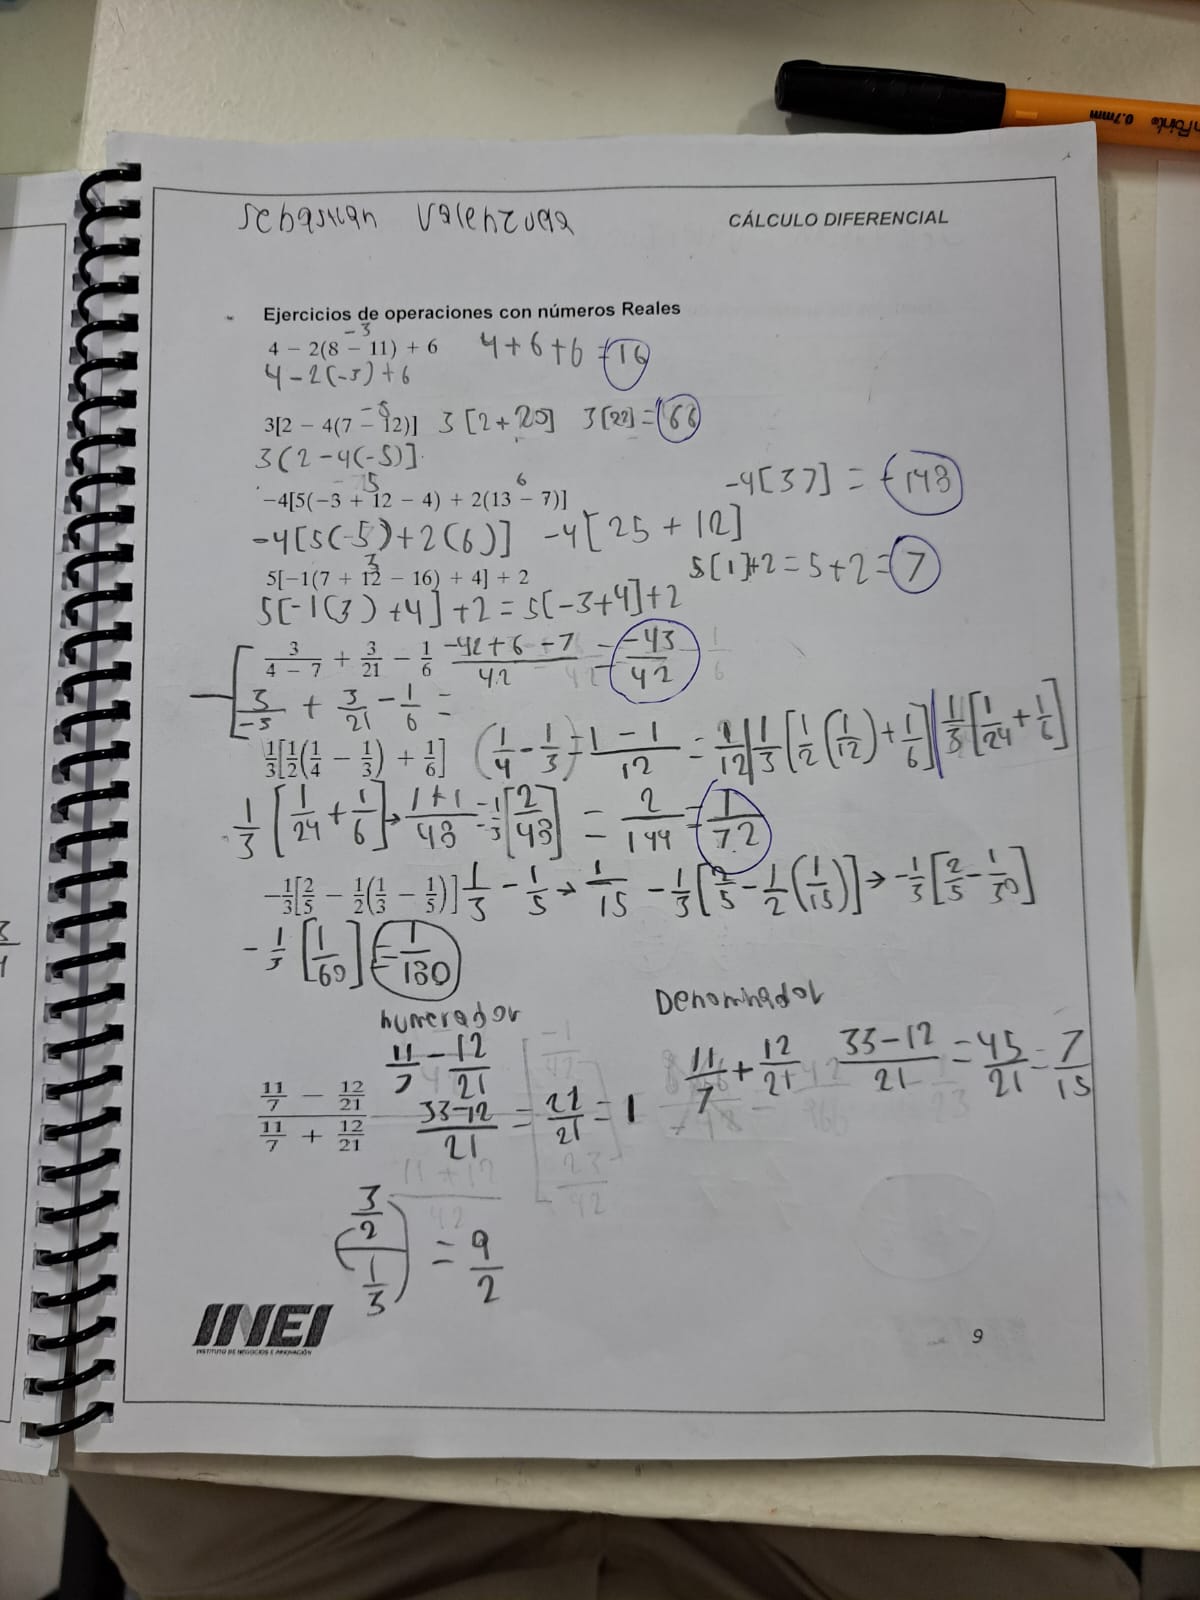 Sebastian Valenzuela
CÁLCULO DIFERENCIAL
Ejercicios de operaciones con números Reales
-3
4 − 2(8 − 11) + 6 4+6+6 = 16
4-2(-3)+6
-5
3[2 − 4(7 − 12)] 3[2+20] 3[22] = 66
3(2-4(-5)]
-4[37] = -148
5 6
−4[5(−3 + 12 − 4) + 2(13 − 7)]
-4[5(-5)+2(6)] -4[25+12]
5[1]+2=5+2=7
3
5[−1(7 + 12 − 16) + 4] + 2
5[-1(3)+4]+2=5[-3+4]+2
3/(4 − 7) + 3/21 − 1/6 (-42+6-7)/42 = -43/42
3/-3 + 3/21 - 1/6 =
1/3[1/2(1/4 − 1/3) + 1/6] (1/4 - 1/3) = (1-1)/12 = 1/12 | 1/3[1/2(1/12)+1/6] | 1/3[1/24+1/6]
1/3[1/24+1/6] → (1+1)/48 = 1/3[2/48] = 2/144 = 1/72
−1/3[2/5 − 1/2(1/3 − 1/5)] 1/3 - 1/5 → 1/15 -1/3[2/5-1/2(1/15)] → -1/3[2/5-1/30]
-1/3[1/60] = 1/180
numerador Denominador
11/7 - 12/21 11/7 + 12/21 (33-12)/21 = 45/21 = 7/15
(11/7 − 12/21)/(11/7 + 12/21) (33-12)/21 = 21/21 = 1
(3/2)/(1/3) = 9/2
INEI
INSTITUTO DE NEGOCIOS E INNOVACIÓN
9
Point 0.7mm